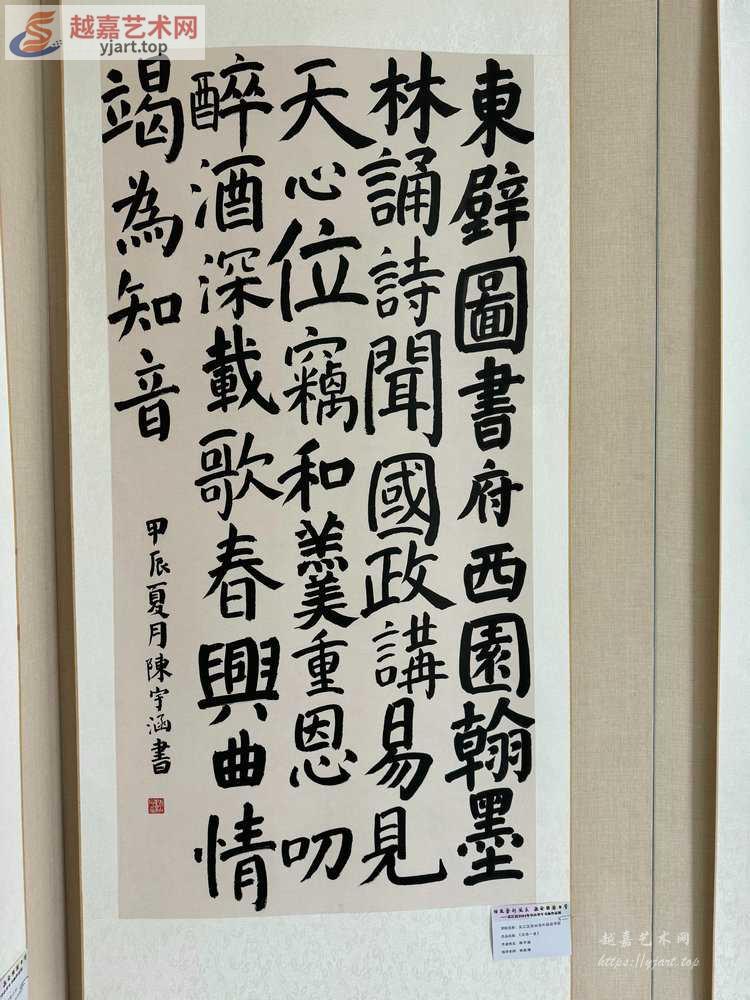 越嘉艺术网
yjart.top
東壁圖書府西園翰墨
林誦詩聞國政講易見
天心位竊和羹重恩叨
醉酒深載歌春興曲情
竭為知音
甲辰夏月陳宇涵書
越嘉艺术网
https://yjart.top